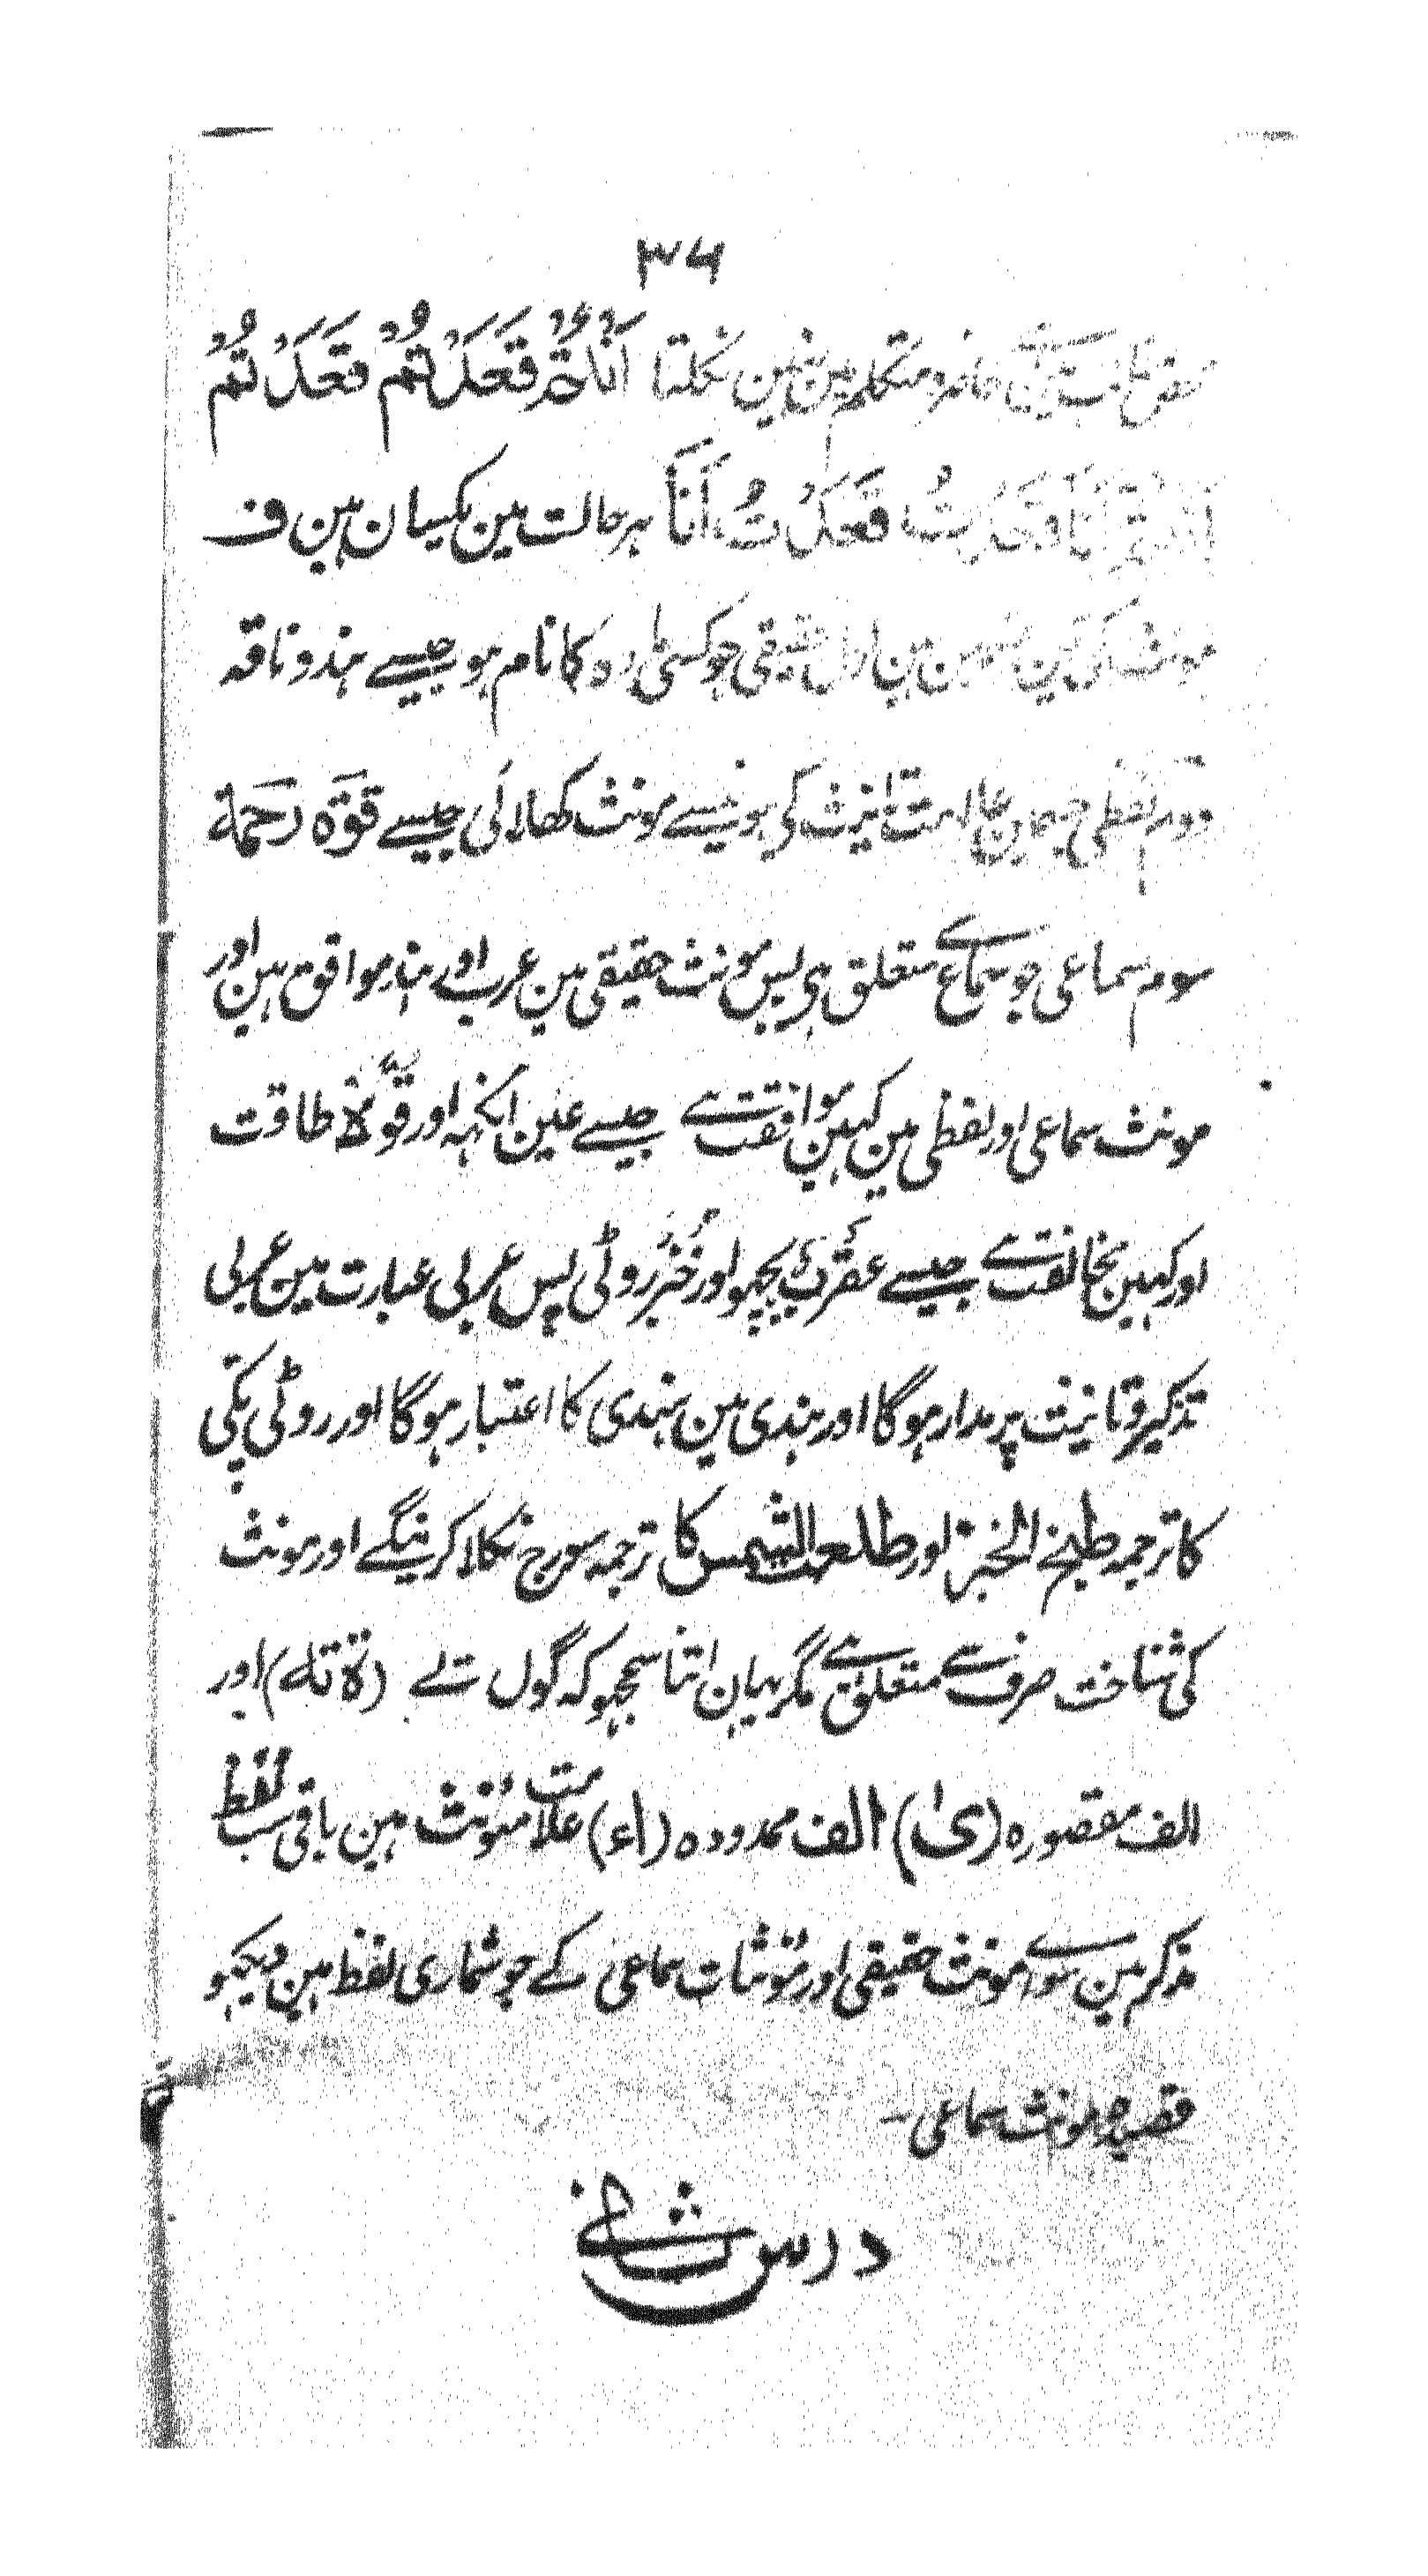 ۳۶
حاضر و متکلم مین نہین نکلتا اَنَا خُرٌ قَعَدْتُمْ قَعَدْتُمْ
قَعَدْتُ اَنَا ہر حالت مین یکسیان ہین ف
مونث کی تین قسمین ہین اول حقیقی جو کسی مادہ کا نام ہو جیسے ہند و ناقہ
دوم لفظی جسمین علامت تانیث کی ہو جیسے مونث کھلائی جیسے قوّۃ رَحمة
سوم سماعی جو سماع سے متعلق ہی پس مونث حقیقی مین عرب اور ہند موافق ہین اور
مونث سماعی اور لفظی مین کہین موافقت ہے جیسے عین انکہہ اور قُوّۃٌ طاقت
اور کہین مخالفت ہے جیسے عَقْرَبٌ بچہو اور خُبْزٌ روٹی پس عربی عبارت مین عربی
تذکیر و تانیث پر مدار ہوگا اور ہندی مین ہندی کا اعتبار ہوگا اور روٹی پکی
کا ترجمہ طبخ الخبز اور طلعت الشمس کا ترجمہ سورج نکلا کرینگے اور مونث
کی شناخت صرف سے متعلق ہے مگر یہان اتنا سمجہو کہ گول تے (ة تہ) اور
الف مقصورہ (یٰ) الف ممدودہ (اء) علامت مئونث ہین باقی سب لفظ
مذکر ہین سواے مونث حقیقی اور مئونثات سماعی کے جو شماری لفظ ہین دیکہو
قصیدہ مونث سماعی۔
درس ثانی